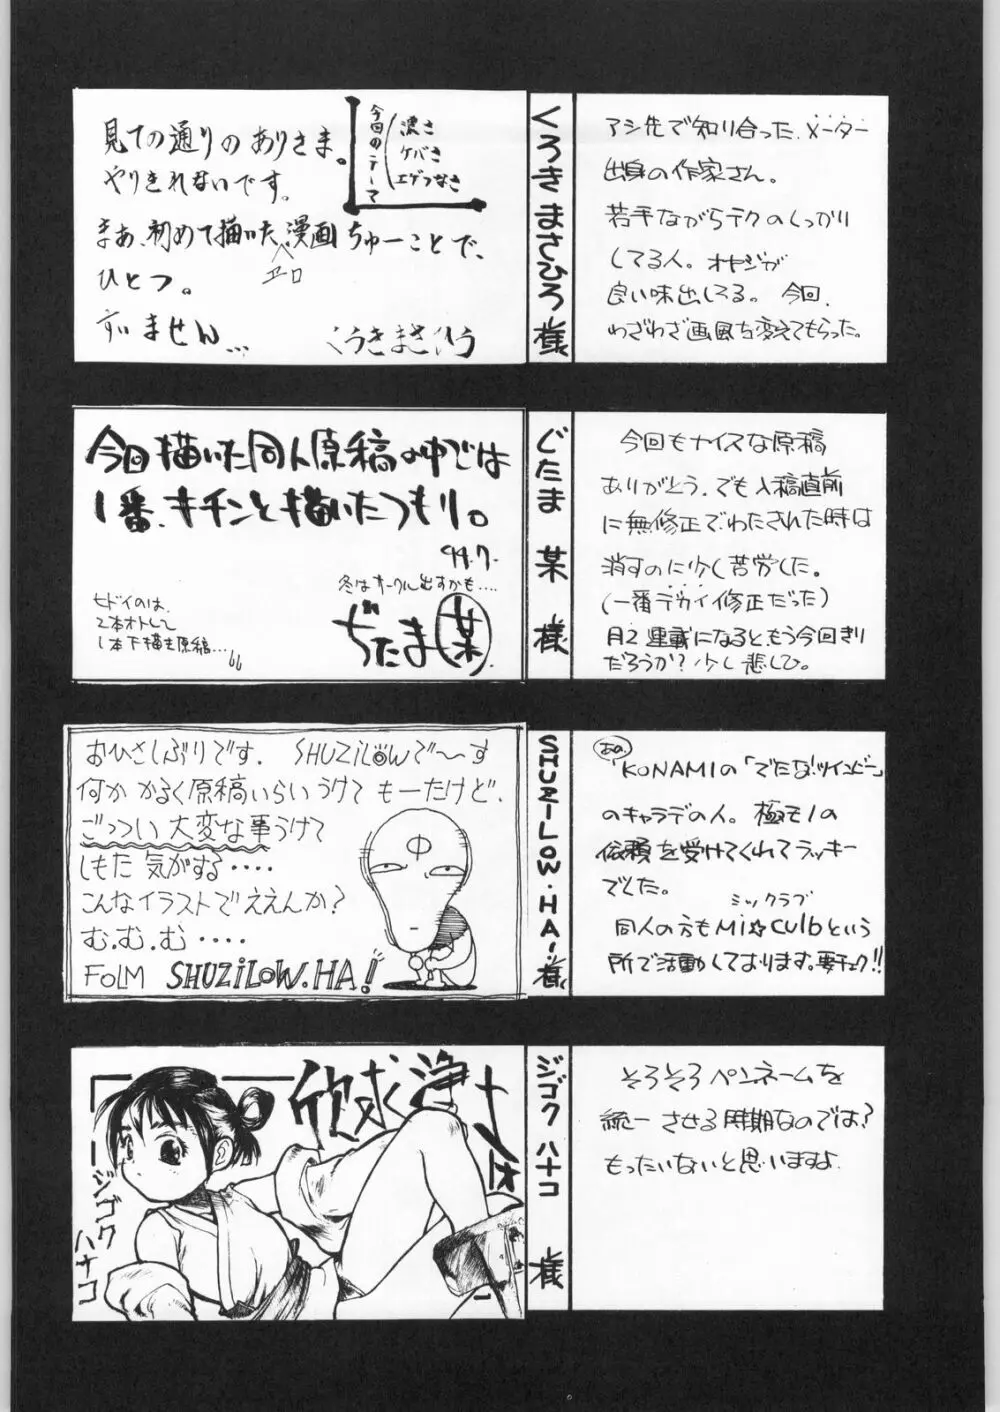 見ての通りのありさま。
やりきれないです。
まぁ、初めて描いた漫画ちゅーことで、
エロ
ひとつ。
すいません...
くろきまさひろ
今回のテーマ
濃さ
ケバさ
エゲつなさ
くろきまさひろ様
アシ先で知り合った、メーター
出身の作家さん。
若手ながらテクのしっかり
してる人。オヤジが
良い味出してる。今回、
わざわざ画風を変えてもらった。
今回描いた同人原稿の中では
1番、キチンと描いたつもり。
99.7.
冬はサークル出すかも....
ヒドイのは、
2本オトして
1本下描き原稿...
ぢたま(某)
ぢたま 某 様
今回もナイスな原稿
ありがとう。でも入稿直前
に無修正でわたされた時は
消すのに少し苦労した。
(一番デカイ修正だった)
月2連載になると、もう今回きり
だろうか?少し悲しい。
おひさしぶりです。SHUZILOWで〜す
何かかるく原稿いらいうけてもーたけど、
ごっつい大変な事うけて
しもた気がする・・・・
こんなイラストでええんか?
む、む、む・・・・
FoLM SHUZiLOW.HA!
中
SHUZILOW.HA!様
あの、
KONAMIの「でたな!ツインビー」
のキャラデの人。極モノの
依頼を受けてくれてラッキー
でした。
ミックラブ
同人の方もMi☆Culbという
所で活動しております。要チェク!!
欣求浄土
ジゴクハナコ
ジゴク ハナコ 様
そろそろペンネームを
統一させる時期なのでは?
もったいないと思いますよ